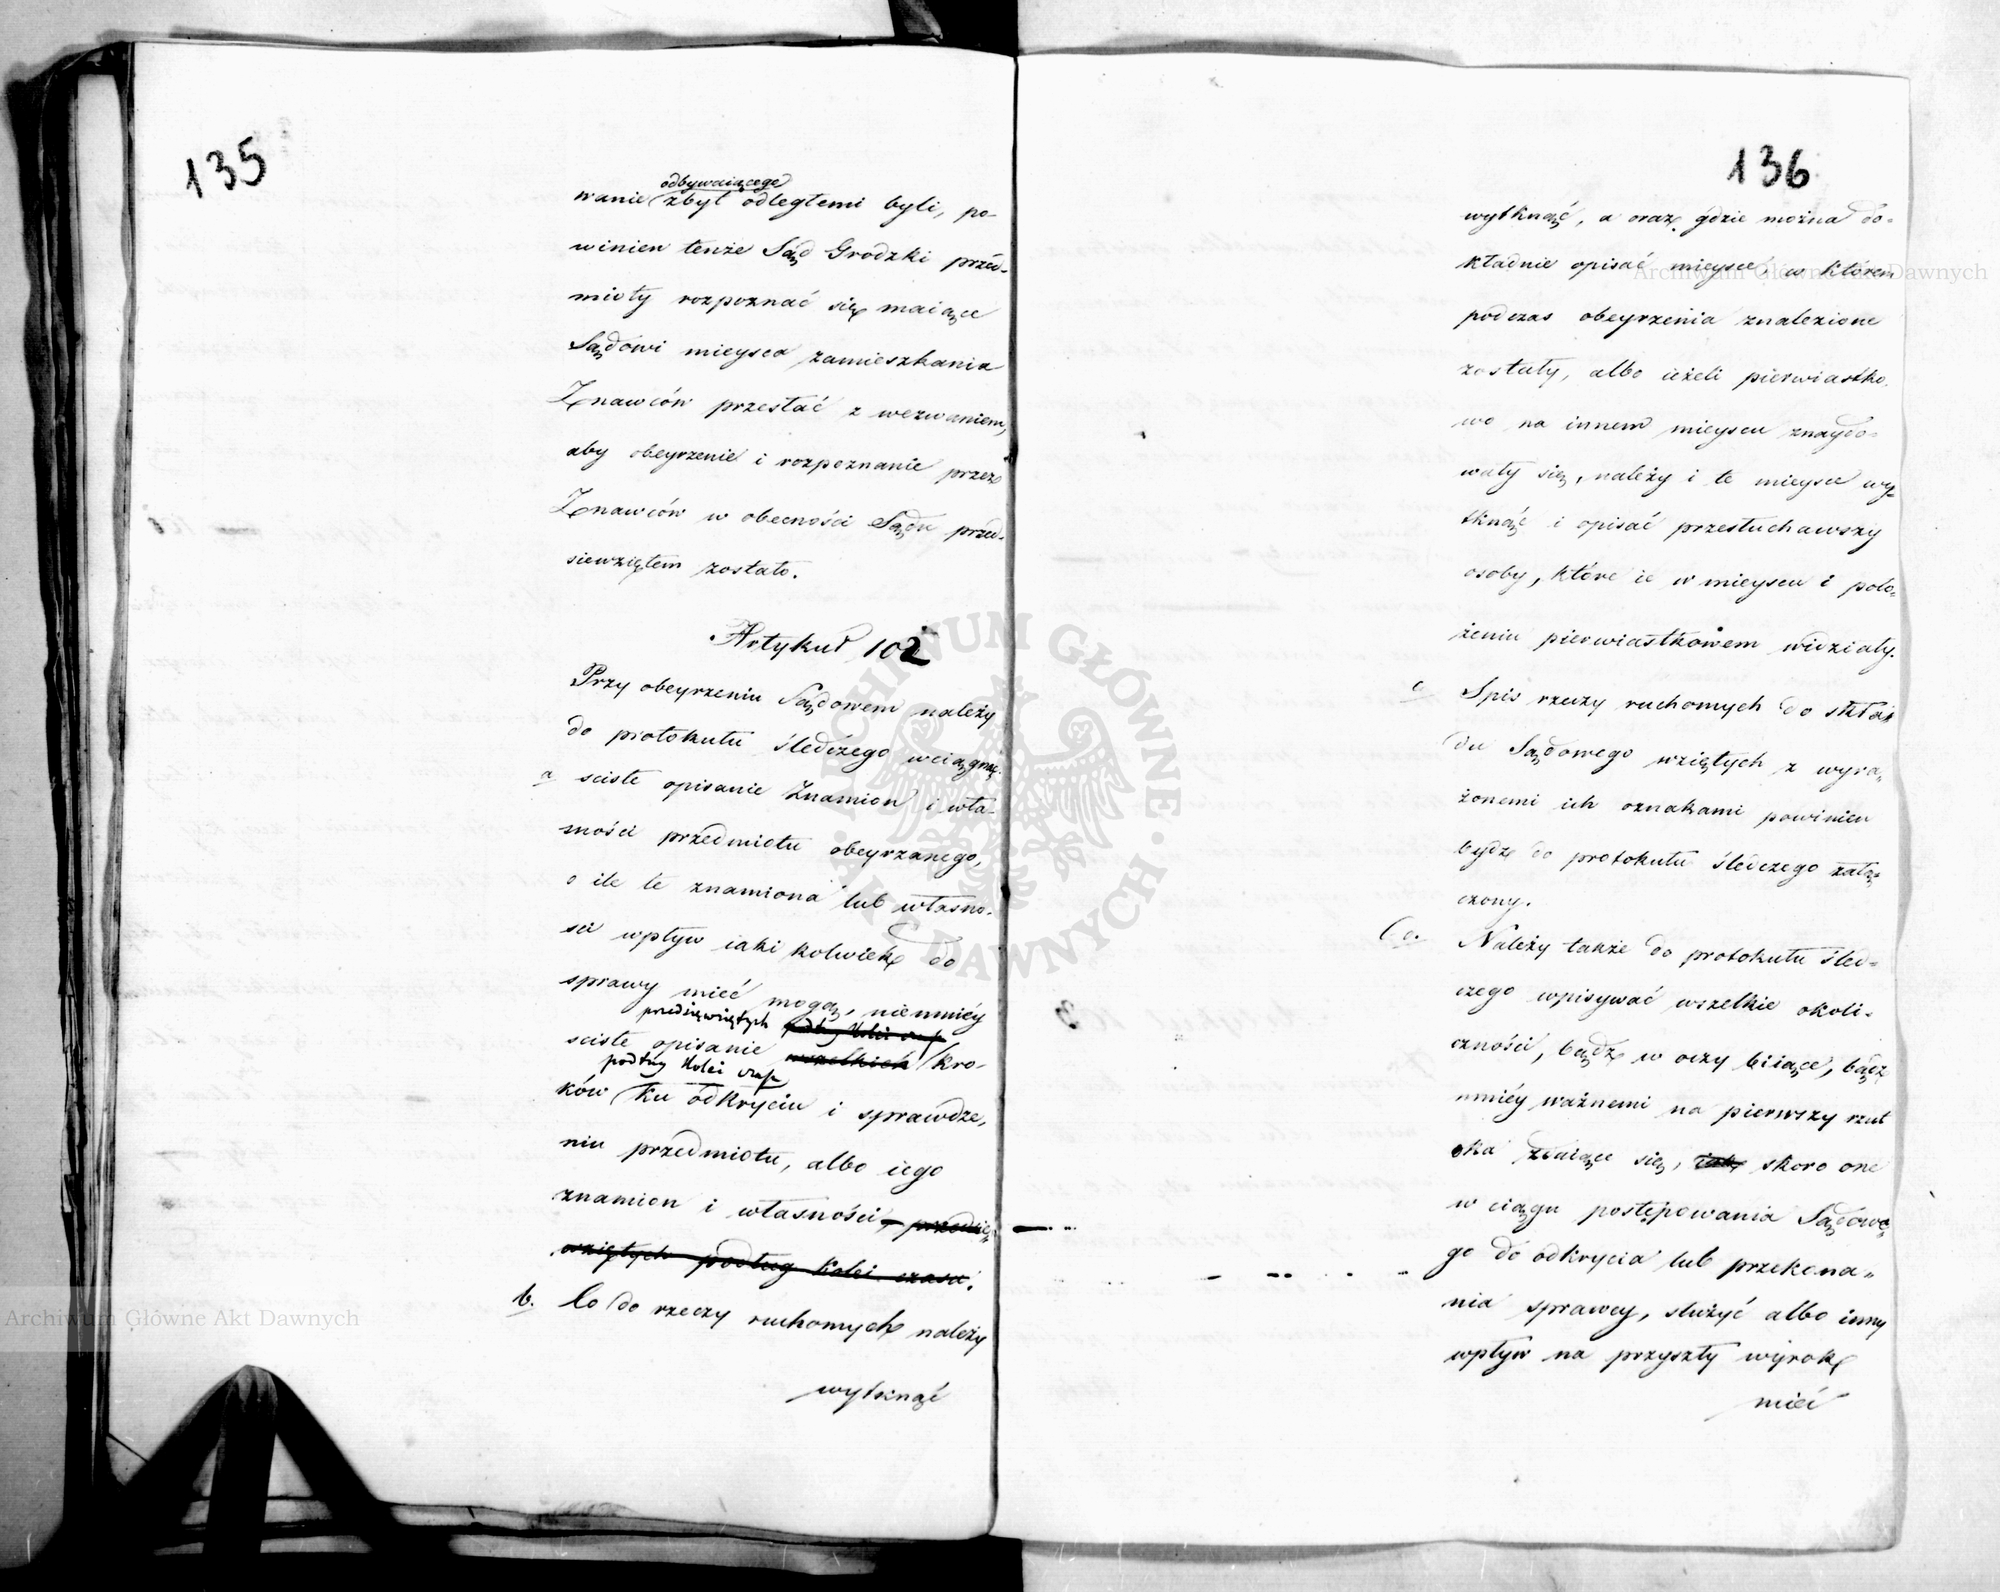 135
odbywaiącego
wanie zbyt odległemi byli, po-
winien tenże Sąd Grodzki przed-
mioty rozpoznać się maiące
Sądowi mieysca zamieszkania
Znawców przesłać z wezwaniem,
aby obeyrzenie i rozpoznanie przez
Znawców w obecności Sądu przed-
siewziętem zostało.
Artykuł 102
Przy obeyrzeniu Sądowem należy
do protokułu śledczego wciągnąć.
a ścisłe opisanie Znamion i wła-
sności przedmiotu obeyrzanego,
o ile te znamiona lub własno-
ści wpływ iaki kolwiek do
sprawy mieć mogą, niemniéy
przedsięwziętych podług kolei czasu
ścisłe opisanie wszelkich kro-
podług kolei czasu
ków ku odkryciu i sprawdze-
niu przedmiotu, albo iego
znamion i własności, przedsię-
wziętych podług kolei czasu.
b. Co do rzeczy ruchomych należy
wytknąć
136
wytknąć, a oraz gdzie można do-
kładnie opisać mieysce, w którem
podczas obeyrzenia znalezione
zostały, albo ieżeli pierwiastko-
wo na innem mieyscu znaydo-
wały się, należy i te mieysce wy-
tknąć i opisać przesłuchawszy
osoby, które ie w mieyscu i poło-
żeniu pierwiastkowem widziały.
c Spis rzeczy ruchomych do skła-
du Sądowego wziętych z wyra-
żonemi ich oznakami powinien
bydź do protokułu śledczego załą-
czony.
Należy także do protokułu śled-
czego wpisywać wszelkie okoli-
czności, bądź w oczy biiące, bądź
mniéy ważnemi na pierwszy rzut
oka zdaiące się, skoro one
w ciągu postępowania Sądowe-
go do odkrycia lub przekona-
nia sprawcy, służyć albo inny
wpływ na przyszły wyrok
mieć
Archiwum Główne Akt Dawnych
Archiwum Główne Akt Dawnych
ARCHIWUM GŁÓWNE AKT DAWNYCH